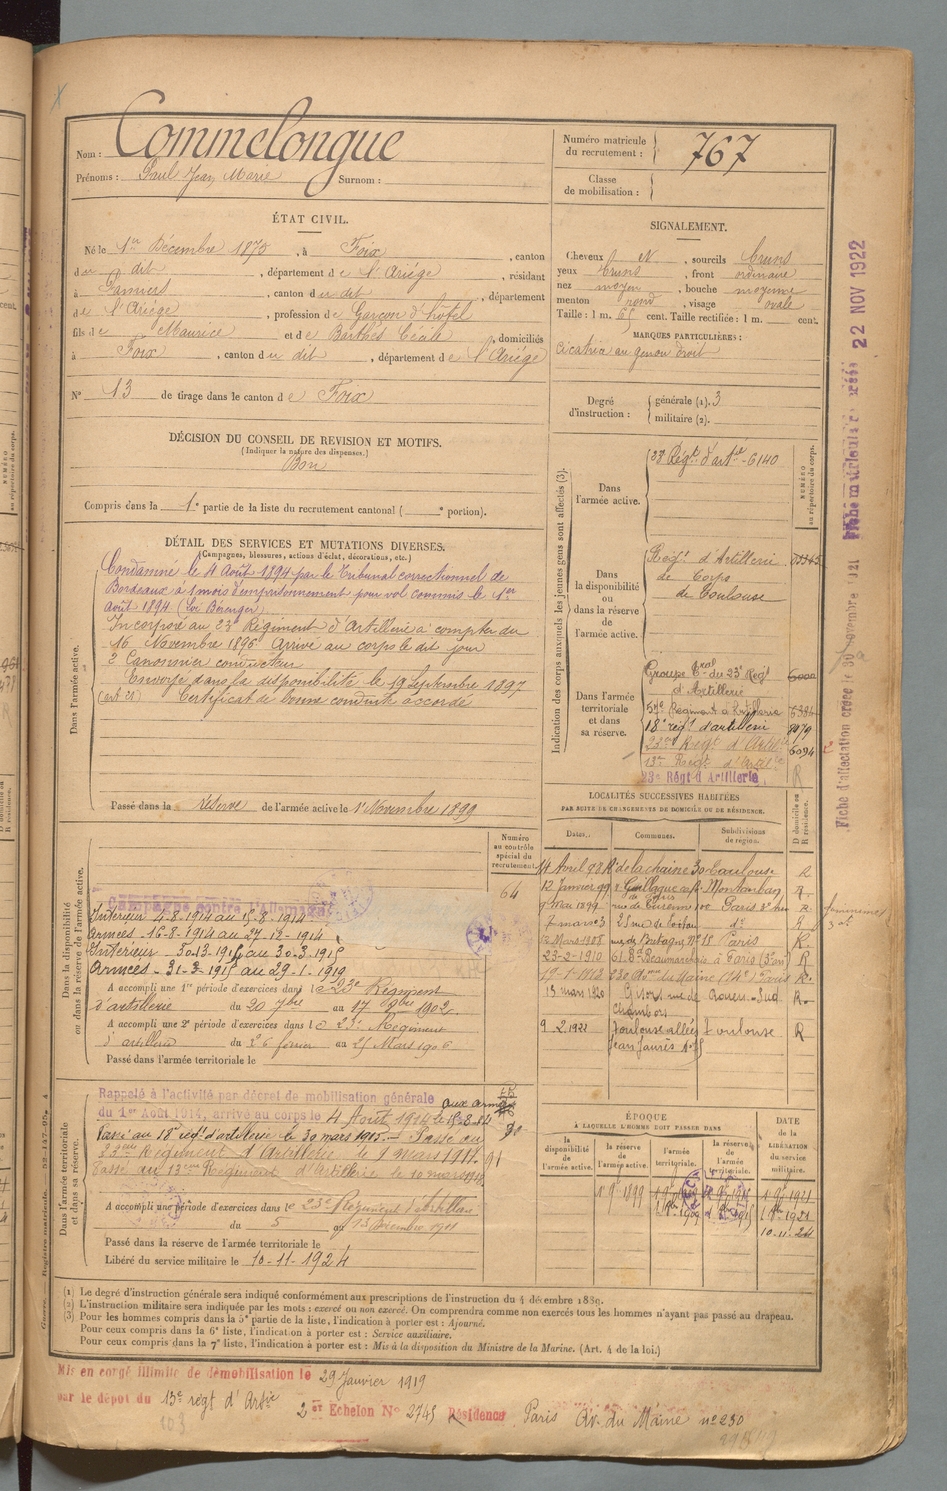 Nom : Commelongue
Prénoms : Paul Jean Marie Surnom :
Numéro matricule du recrutement : 767
Classe de mobilisation :
ÉTAT CIVIL.
Né le 1er Décembre 1875, à Foix, canton
du dit, département de l'Ariége, résidant
à Pamiers, canton du dit, département
de l'Ariége, profession de Garçon d'hôtel
fils de Maurice et de Barthés Cécile, domiciliés
à Foix, canton du dit, département de l'Ariége
N° 13 de tirage dans le canton de Foix
SIGNALEMENT.
Cheveux N, sourcils bruns
yeux bruns, front ordinaire
nez moyen, bouche moyenne
menton rond, visage ovale
Taille : 1 m. 65 cent. Taille rectifiée : 1 m. cent.
MARQUES PARTICULIÈRES :
Cicatrice au genou droit
Degré d'instruction : générale (1). 3
militaire (2).
DÉCISION DU CONSEIL DE REVISION ET MOTIFS.
(Indiquer la nature des dispenses.)
Bon
Compris dans la 1e partie de la liste du recrutement cantonal ( e portion).
DÉTAIL DES SERVICES ET MUTATIONS DIVERSES.
(Campagnes, blessures, actions d'éclat, décorations, etc.)
Dans l'armée active.
Condamné le 4 Août 1894 par le Tribunal correctionnel de
Bordeaux à 1 mois d'emprisonnement pour vol commis le 1er
août 1894 (Loi Bérenger)
Incorporé au 23e Régiment d'Artillerie à compter du
16 Novembre 1896 Arrivé au corps le dit jour
2e Canonnier conducteur
Envoyé dans la disponibilité le 19 Septembre 1897
Certificat de bonne conduite accordé
Passé dans la réserve de l'armée active le 1er Novembre 1899
Indication des corps auxquels les jeunes gens sont affectés (3).
NUMÉRO au répertoire du corps.
Dans l'armée active.
23e Régt d'artie 6140
Dans la disponibilité ou dans la réserve de l'armée active.
Régt d'Artillerie
de Corps
de Toulouse
Dans l'armée territoriale et dans sa réserve.
Groupe Tral du 23e Régt
d'Artillerie
57e Régiment d'Artillerie
18e régt d'artillerie 8079
23e Régt d'Artie 6094
13e Régt d'Artie
23e Régt d'Artillerie
LOCALITÉS SUCCESSIVES HABITÉES
PAR SUITE DE CHANGEMENTS DE DOMICILE OU DE RÉSIDENCE.
Dates. Communes. Subdivisions de région. D domicile ou R résidence.
14 Avril 98 R. de la chaine 30 Toulouse R
12 Janvier 99 Montauban R
9 mai 1899 rue de Turenne 100 Paris R
7 mars 3 R
12 Mars 1908 rue de Bretagne N° 15 Paris R
23-2-1910 61 Bd Beaumarchais à Paris (3e arr) R
19-1-1912 230 Avue du Maine (14e) Paris R
13 mars 1920 R
9-2-1922 Toulouse allées Toulouse R
Jean Jaurès
Numéro au contrôle spécial du recrutement
64
Dans la disponibilité ou dans la réserve de l'armée active.
Campagne contre l'Allemagne
Intérieur 4-8-1914 au 15-8-1914
Armées - 16-8-1914 au 27-12-1914
Armées - 31-3-1915 au 29-1-1919
A accompli une 1re période d'exercices dans le 23e Régiment
d'artillerie du 20 7bre au 17 8bre 1902.
A accompli une 2e période d'exercices dans le 23e Régiment
d'artillerie du 26 février au 25 Mars 1906
Passé dans l'armée territoriale le
Dans l'armée territoriale et dans sa réserve.
Rappelé à l'activité par décret de mobilisation générale aux armées
du 1er Août 1914, arrivé au corps le 4 Août 1914 le 15-8-14
Passé au 18e régt d'artillerie le 30 mars 1915. - Passé au
23eme Régiment d'Artillerie le 9 mars 1917. 91
Passé au 13eme Régiment d'Artillerie le 10 mars
A accompli une période d'exercices dans le 23e Régiment d'artillerie
du 5 au 13 Décembre 1911
Passé dans la réserve de l'armée territoriale le
Libéré du service militaire le 10-11-1924
ÉPOQUE
À LAQUELLE L'HOMME DOIT PASSER DANS
la disponibilité de l'armée active. la réserve de l'armée active. l'armée territoriale. la réserve de l'armée territoriale. DATE de la LIBÉRATION du service militaire.
1 9bre 1899 1 9bre 1921
10-11-24
(1) Le degré d'instruction générale sera indiqué conformément aux prescriptions de l'instruction du 4 décembre 1889.
(2) L'instruction militaire sera indiquée par les mots : exercé ou non exercé. On comprendra comme non exercés tous les hommes n'ayant pas passé au drapeau.
(3) Pour les hommes compris dans la 5e partie de la liste, l'indication à porter est : Ajourné.
Pour ceux compris dans la 6e liste, l'indication à porter est : Service auxiliaire.
Pour ceux compris dans la 7e liste, l'indication à porter est : Mis à la disposition du Ministre de la Marine. (Art. 4 de la loi.)
Mis en congé illimité de démobilisation le 29 Janvier 1919
par le dépôt du 13e régt d'Artie
2er Echelon N° 2745 Résidence Paris Av. du Maine n° 230
22 NOV 1922